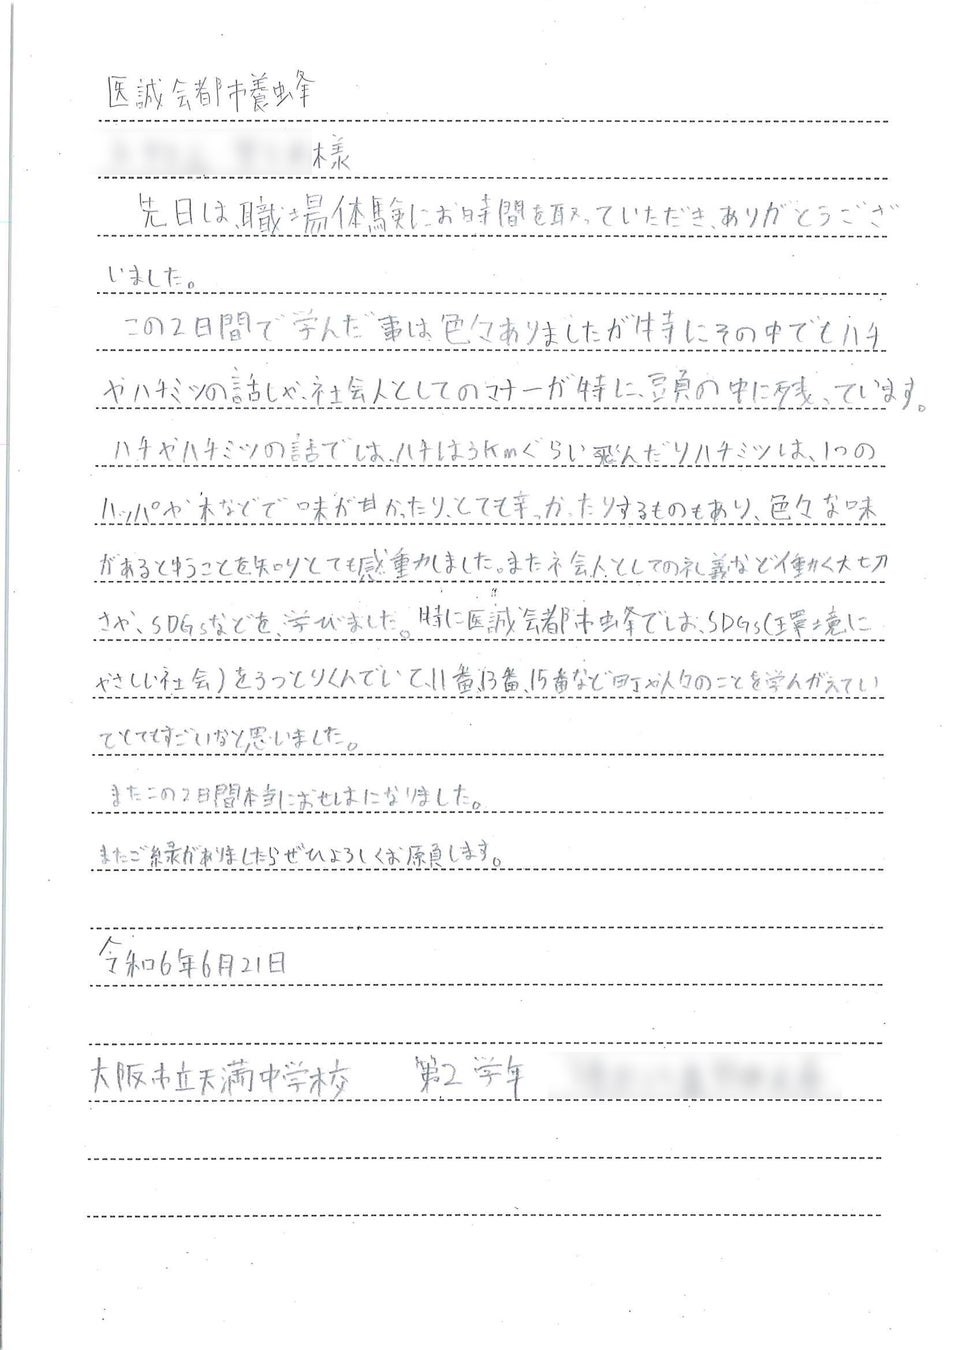 医誠会都市養蜂
様
先日は、職場体験にお時間を取っていただき、ありがとうござ
いました。
この2日間で学んだ事は色々ありましたが特にその中でもハチ
やハチミツの話しや、社会人としてのマナーが特に、頭の中に残っています。
ハチやハチミツの話では、ハチは3Kmぐらい飛んだりハチミツは、1つの
ハッパや木などで味が甘かったり、とても辛かったりするものもあり、色々な味
があるとゆうことを知りとても感動しました。また社会人としての礼義など働く大切
さや、SDGsなどを、学びました。特に医誠会都市蜂では、SDGs(環境に
やさしい社会)をうっとりくんでいて、11番、13番、15番など町や人々のことを学んがえてい
てとてもすごいなと思いました。
またこの2日間本当におせはになりました。
またご縁がありましたらぜひよろしくお願します。
令和6年6月21日
大阪市立天満中学校 第2学年